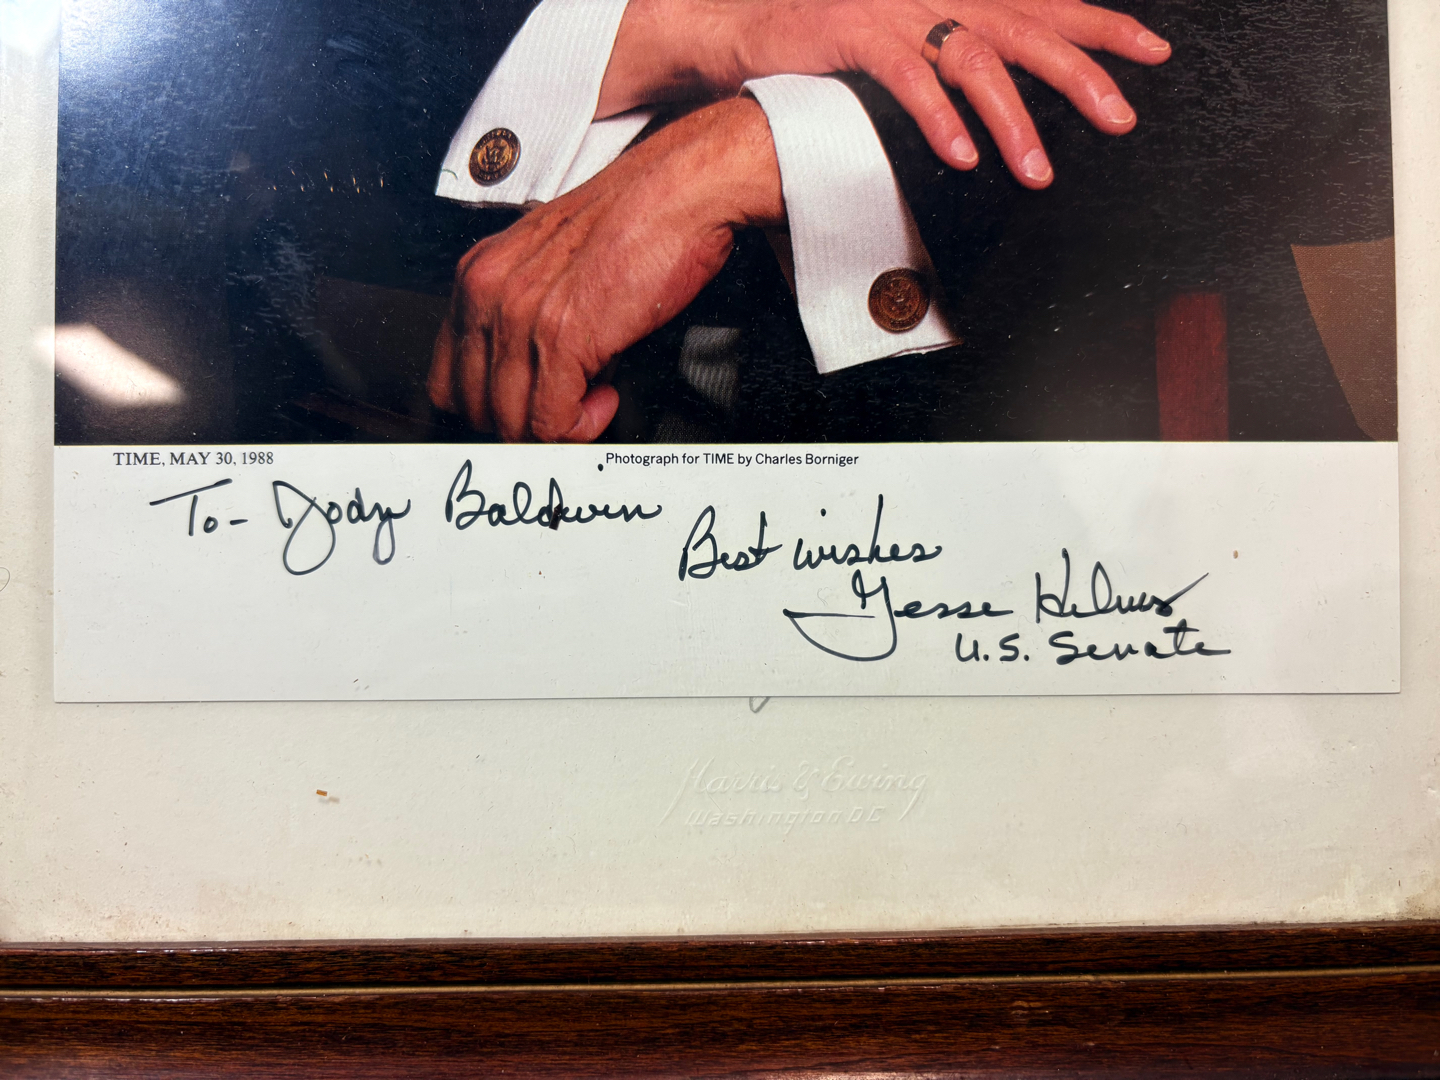 TIME, MAY 30, 1988
Photograph for TIME by Charles Borniger
To- Jody Baldwin
Best wishes
Jesse Helms
U.S. Senate
Harris & Ewing
Washington DC